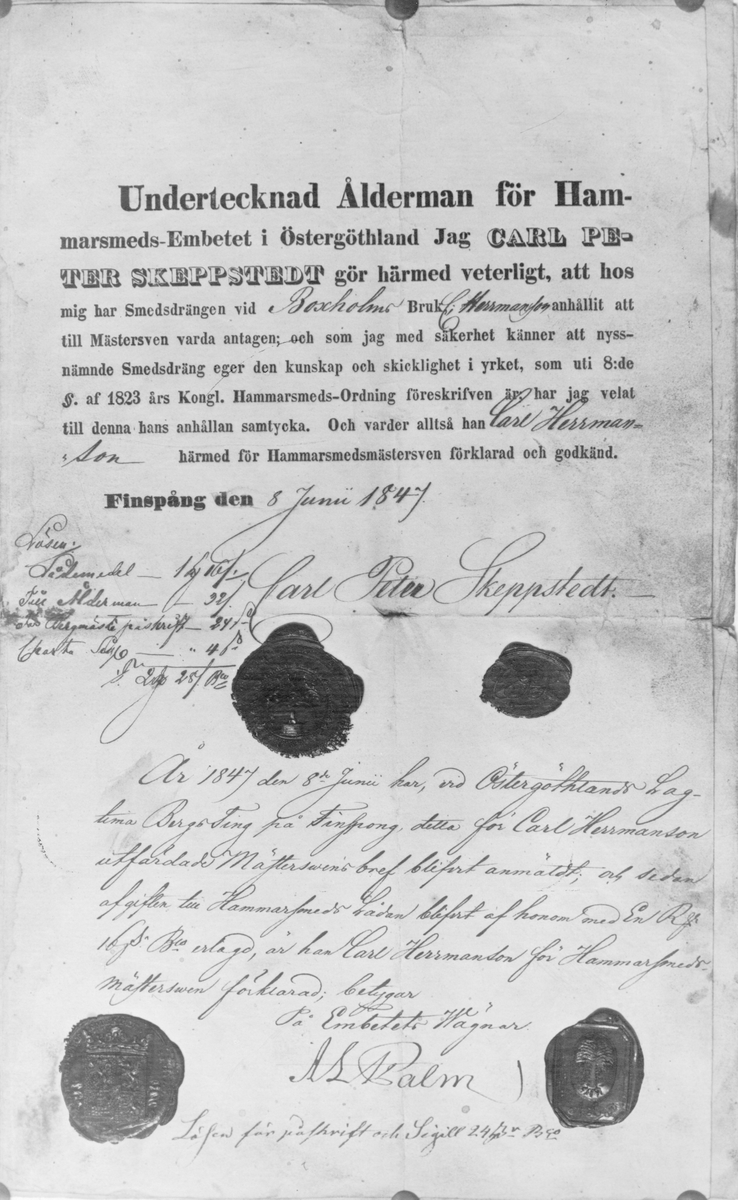 Undertecknad Ålderman för Ham-
marsmeds-Embetet i Östergöthland Jag CARL PE-
TER SKEPPSTEDT gör härmed veterligt, att hos
mig har Smedsdrängen vid Boxholms Bruk C. Herrmanson anhållit att
till Mästersven varda antagen; och som jag med säkerhet känner att nyss-
nämnde Smedsdräng eger den kunskap och skicklighet i yrket, som uti 8:de
§. af 1823 års Kongl. Hammarsmeds-Ordning föreskrifven är; har jag velat
till denna hans anhållan samtycka. Och varder alltså han Carl Herrman=
"son härmed för Hammarsmedsmästersven förklarad och godkänd.
Finspång den 8 Junii 1847.
Lösen:
Lådemedel — 1 16/.
Till Ålderman — 32/.
Carl Peter Skeppstedt.
påskrift — 24
Charta — " 4
S:a 2 28/ Bco
År 1847 den 8de Junii har, vid Östergöthlands Lag-
tima Bergs Ting på Finspong, detta för Carl Herrmanson
utfärdade Mästerswens bref blifvit anmäldt; och sedan
afgiften till Hammarsmeds Lådan blifvit af honom med En Rd
16 sk Bco erlagd, är han Carl Herrmanson för Hammarsmeds-
mästerswen förklarad; betygar
På Embetets Wägnar
A L Palm
Lösen för påskrift och Sigill 24 sk Bco